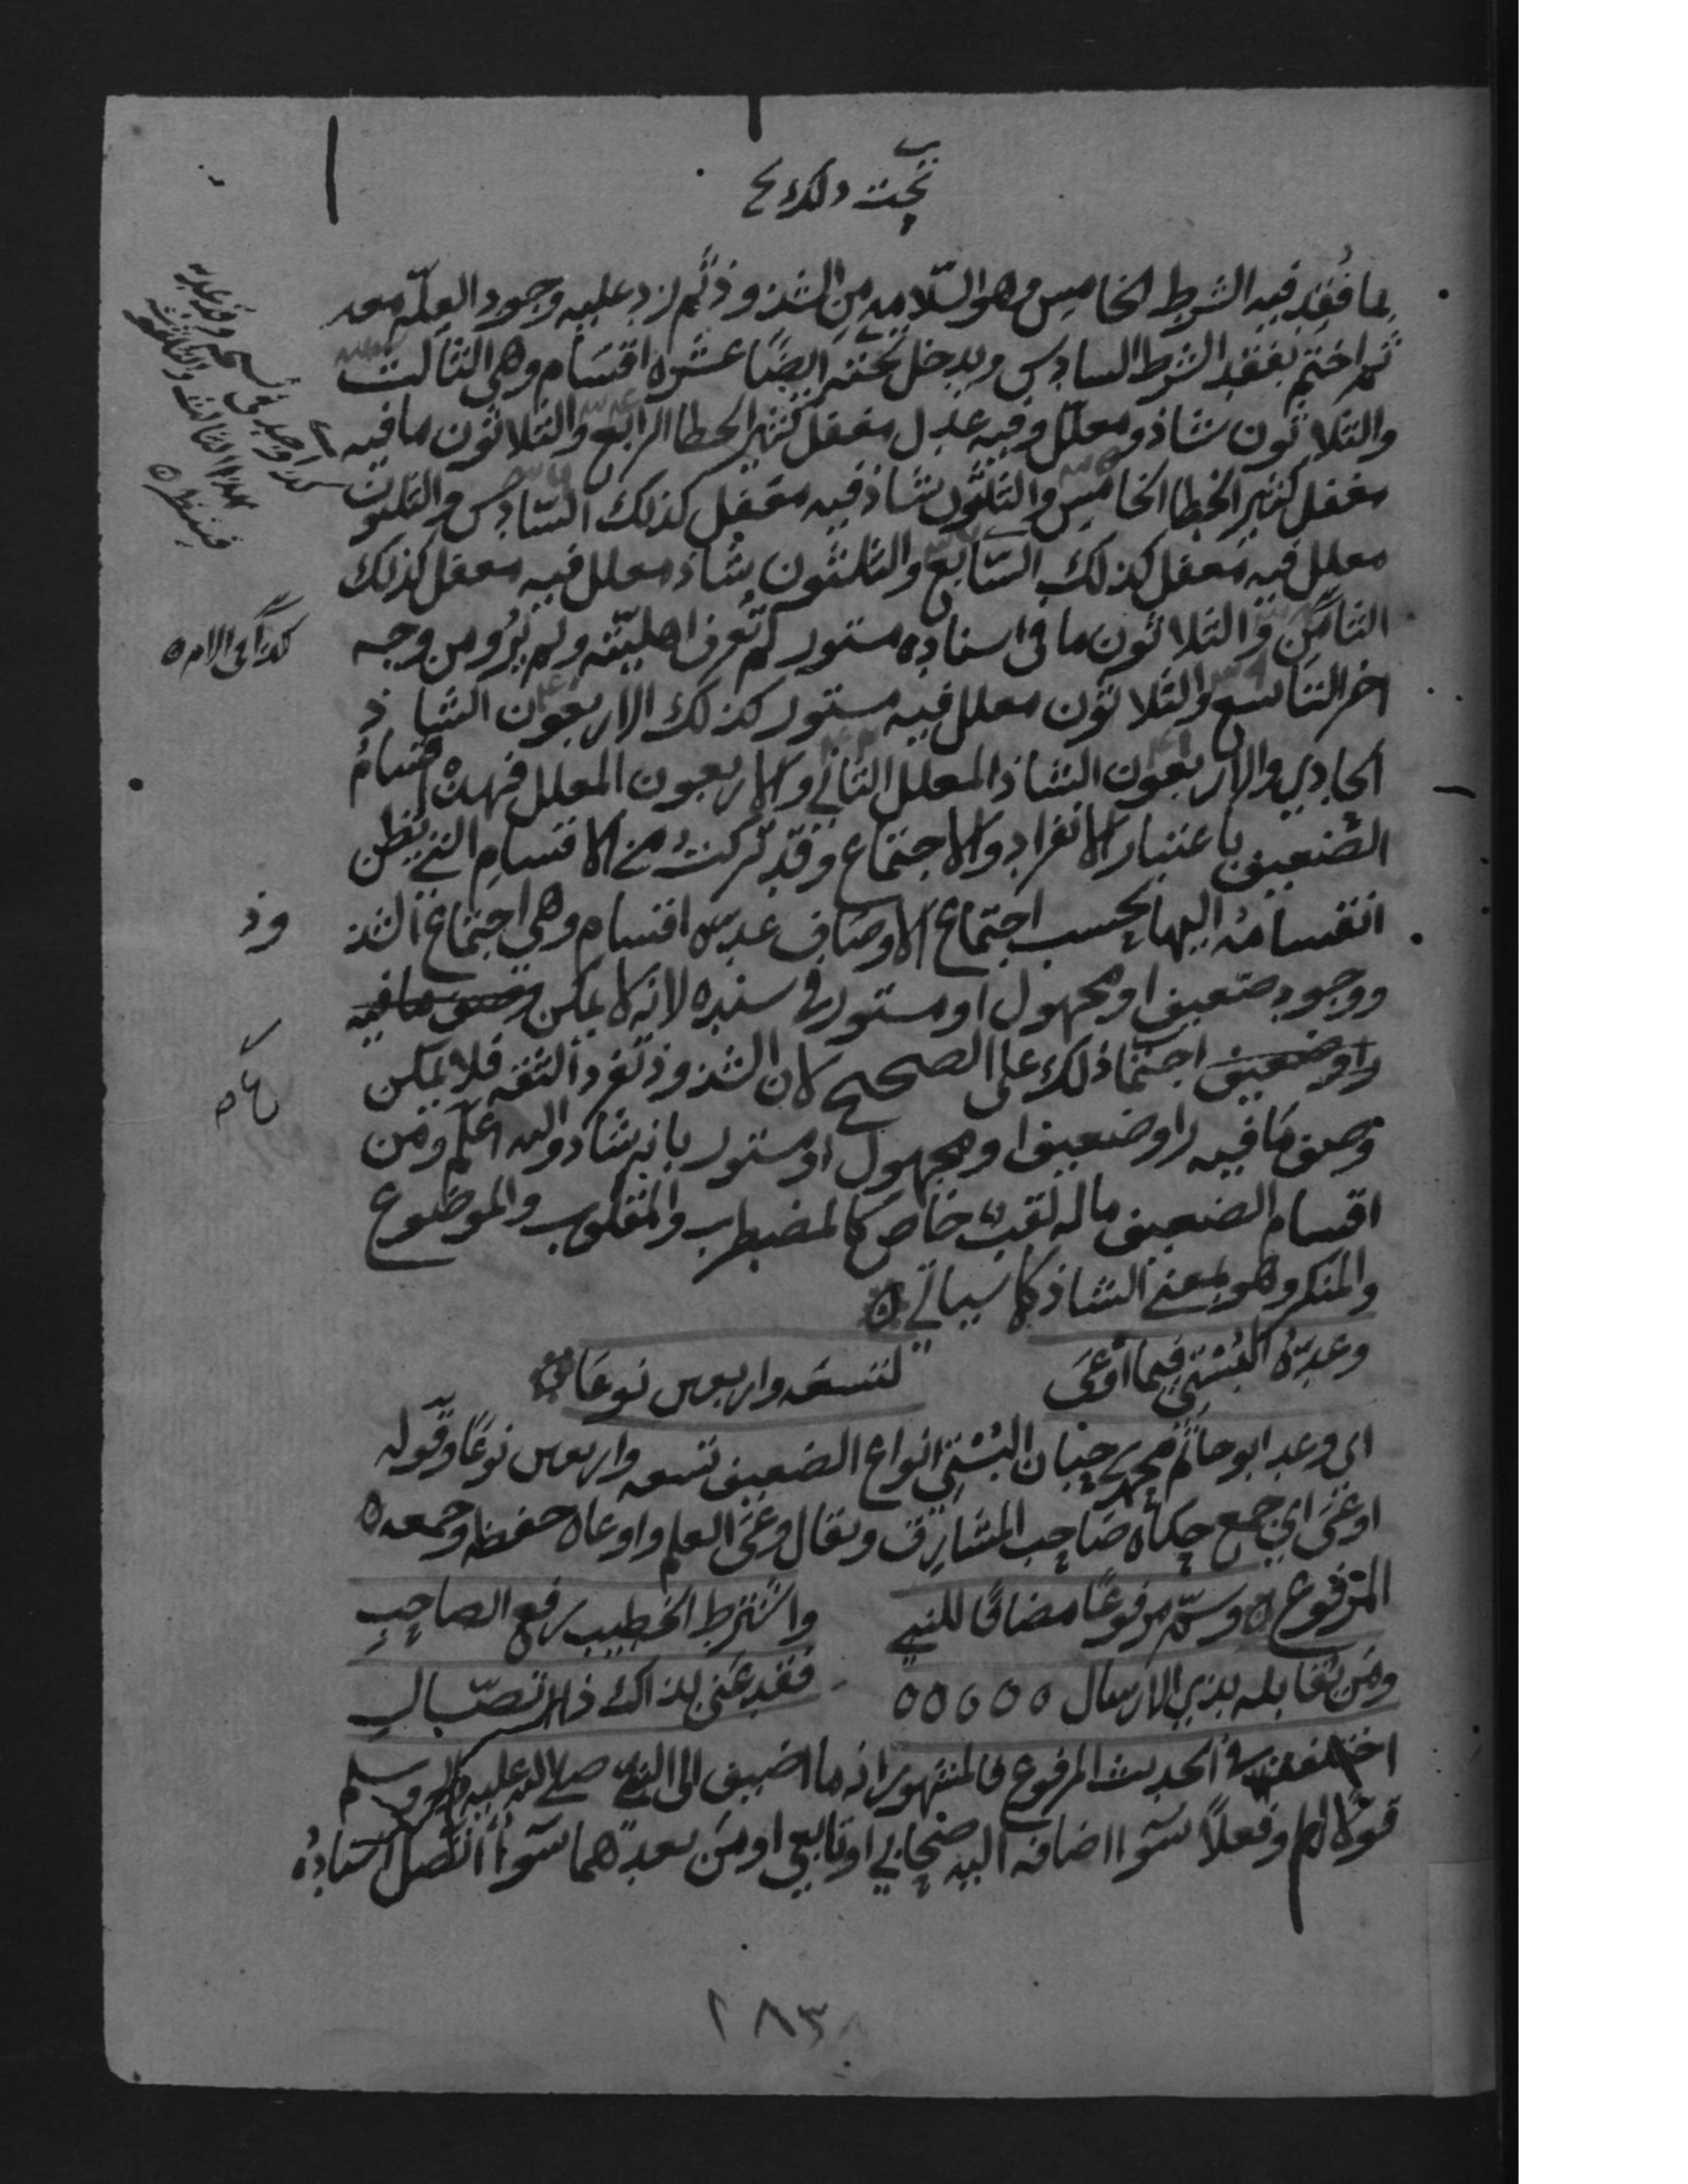 تحت ذلك
بما فُقِد فيه الشرط الخامس وهو السّلامه مِن الشذوذ ثم زد عليه وجود العِلّه معه
ثم اختم بفقد الشرط السادس ويدخل تحته ايضًا عشره اقسَام وهي الثالث
والثلاثون شاذ ومعلل وفيه عدل مغفل كثير الخطا الرابع والثلاثون ما فيه
مغفل كثير الخطا الخامس والثلثون شاذ فيه مغفل كذلك السّادس والثلثون
معلل فيه مغفل كذلك السّابع والثلثون شاذ معلل فيه مغفل كذلك
الثامن والثلاثون ما في اسناده مستور لم تُعرف اهليّته ولم يُرو من وجه
اخر التاسع والثلاثون معلل فيه مستور كذلك الاربعون الشاذ
الحادي والاربعون الشاذ المعلل الثاني والاربعون المعلل فهذه اقسامُ
الضعيف باعتبار الانفراد والاجتماع وقد تركتُ من الاقسامِ التي يُظن
انقسامُه اليها بحسب اجتماع الاوصاف عده اقسام وهي اجتماع الشذ
وذ
ووجود ضعيف او مجهول او مستور في سنده لانه لا يمكن وصف ما فيه
راو ضعيف اجتماع ذلك على الصحيح لان الشذوذ تفرد الثقه فلا يمكن
وصف ما فيه راو ضعيف او مجهول او مستور بانه شاذ والله اعلم ومن
اقسام الضعيف ما له لقب خاص كالمضطرب والمقلوب والموضوع
والمنكر وهو بمعنى الشاذ كما سياتي
وعدّهُ البُسْتي فيما أوعَى لتسعه واربعين نوعًا
اي وعد ابو حاتم محمد بن حبان البُسْتي انواع الضعيف تسعه واربعين نوعًا وقوله
اوعَى اي جمع حكاه صَاحِب المشارق ويقال وعَى العلم واوعاه حفظه وجمعه
المرفوع وسَمِّ مرفوعًا مضافًا للنبي واشترط الخطيب رفع الصاحب
ومَن يُقابله بذي الارسال فقد عَنى بذاك ذا اتصال
اختلف في الحديث المرفوع فالمشهور انه ما اضيف الى النبي صلى الله عليه وسلم
قولًا له او فعلًا سَوا اضافه اليه صحابي او تابعي او من بعدهما سَوا اتصل اسنادُه
١٨٣